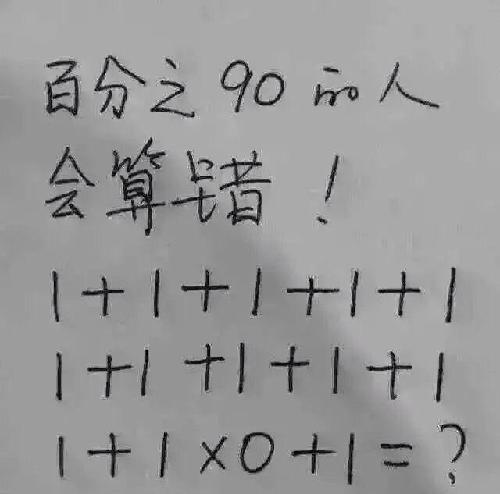 百分之90的人
会算错！
1+1+1+1+1
1+1+1+1+1
1+1×0+1=?